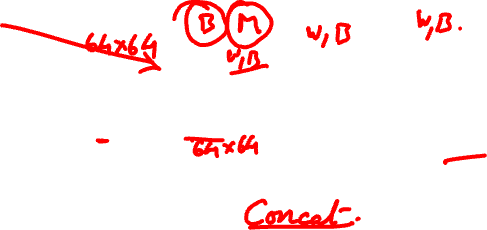 B M
64x64 W,B W,B.
W,B
64x64
Concat.